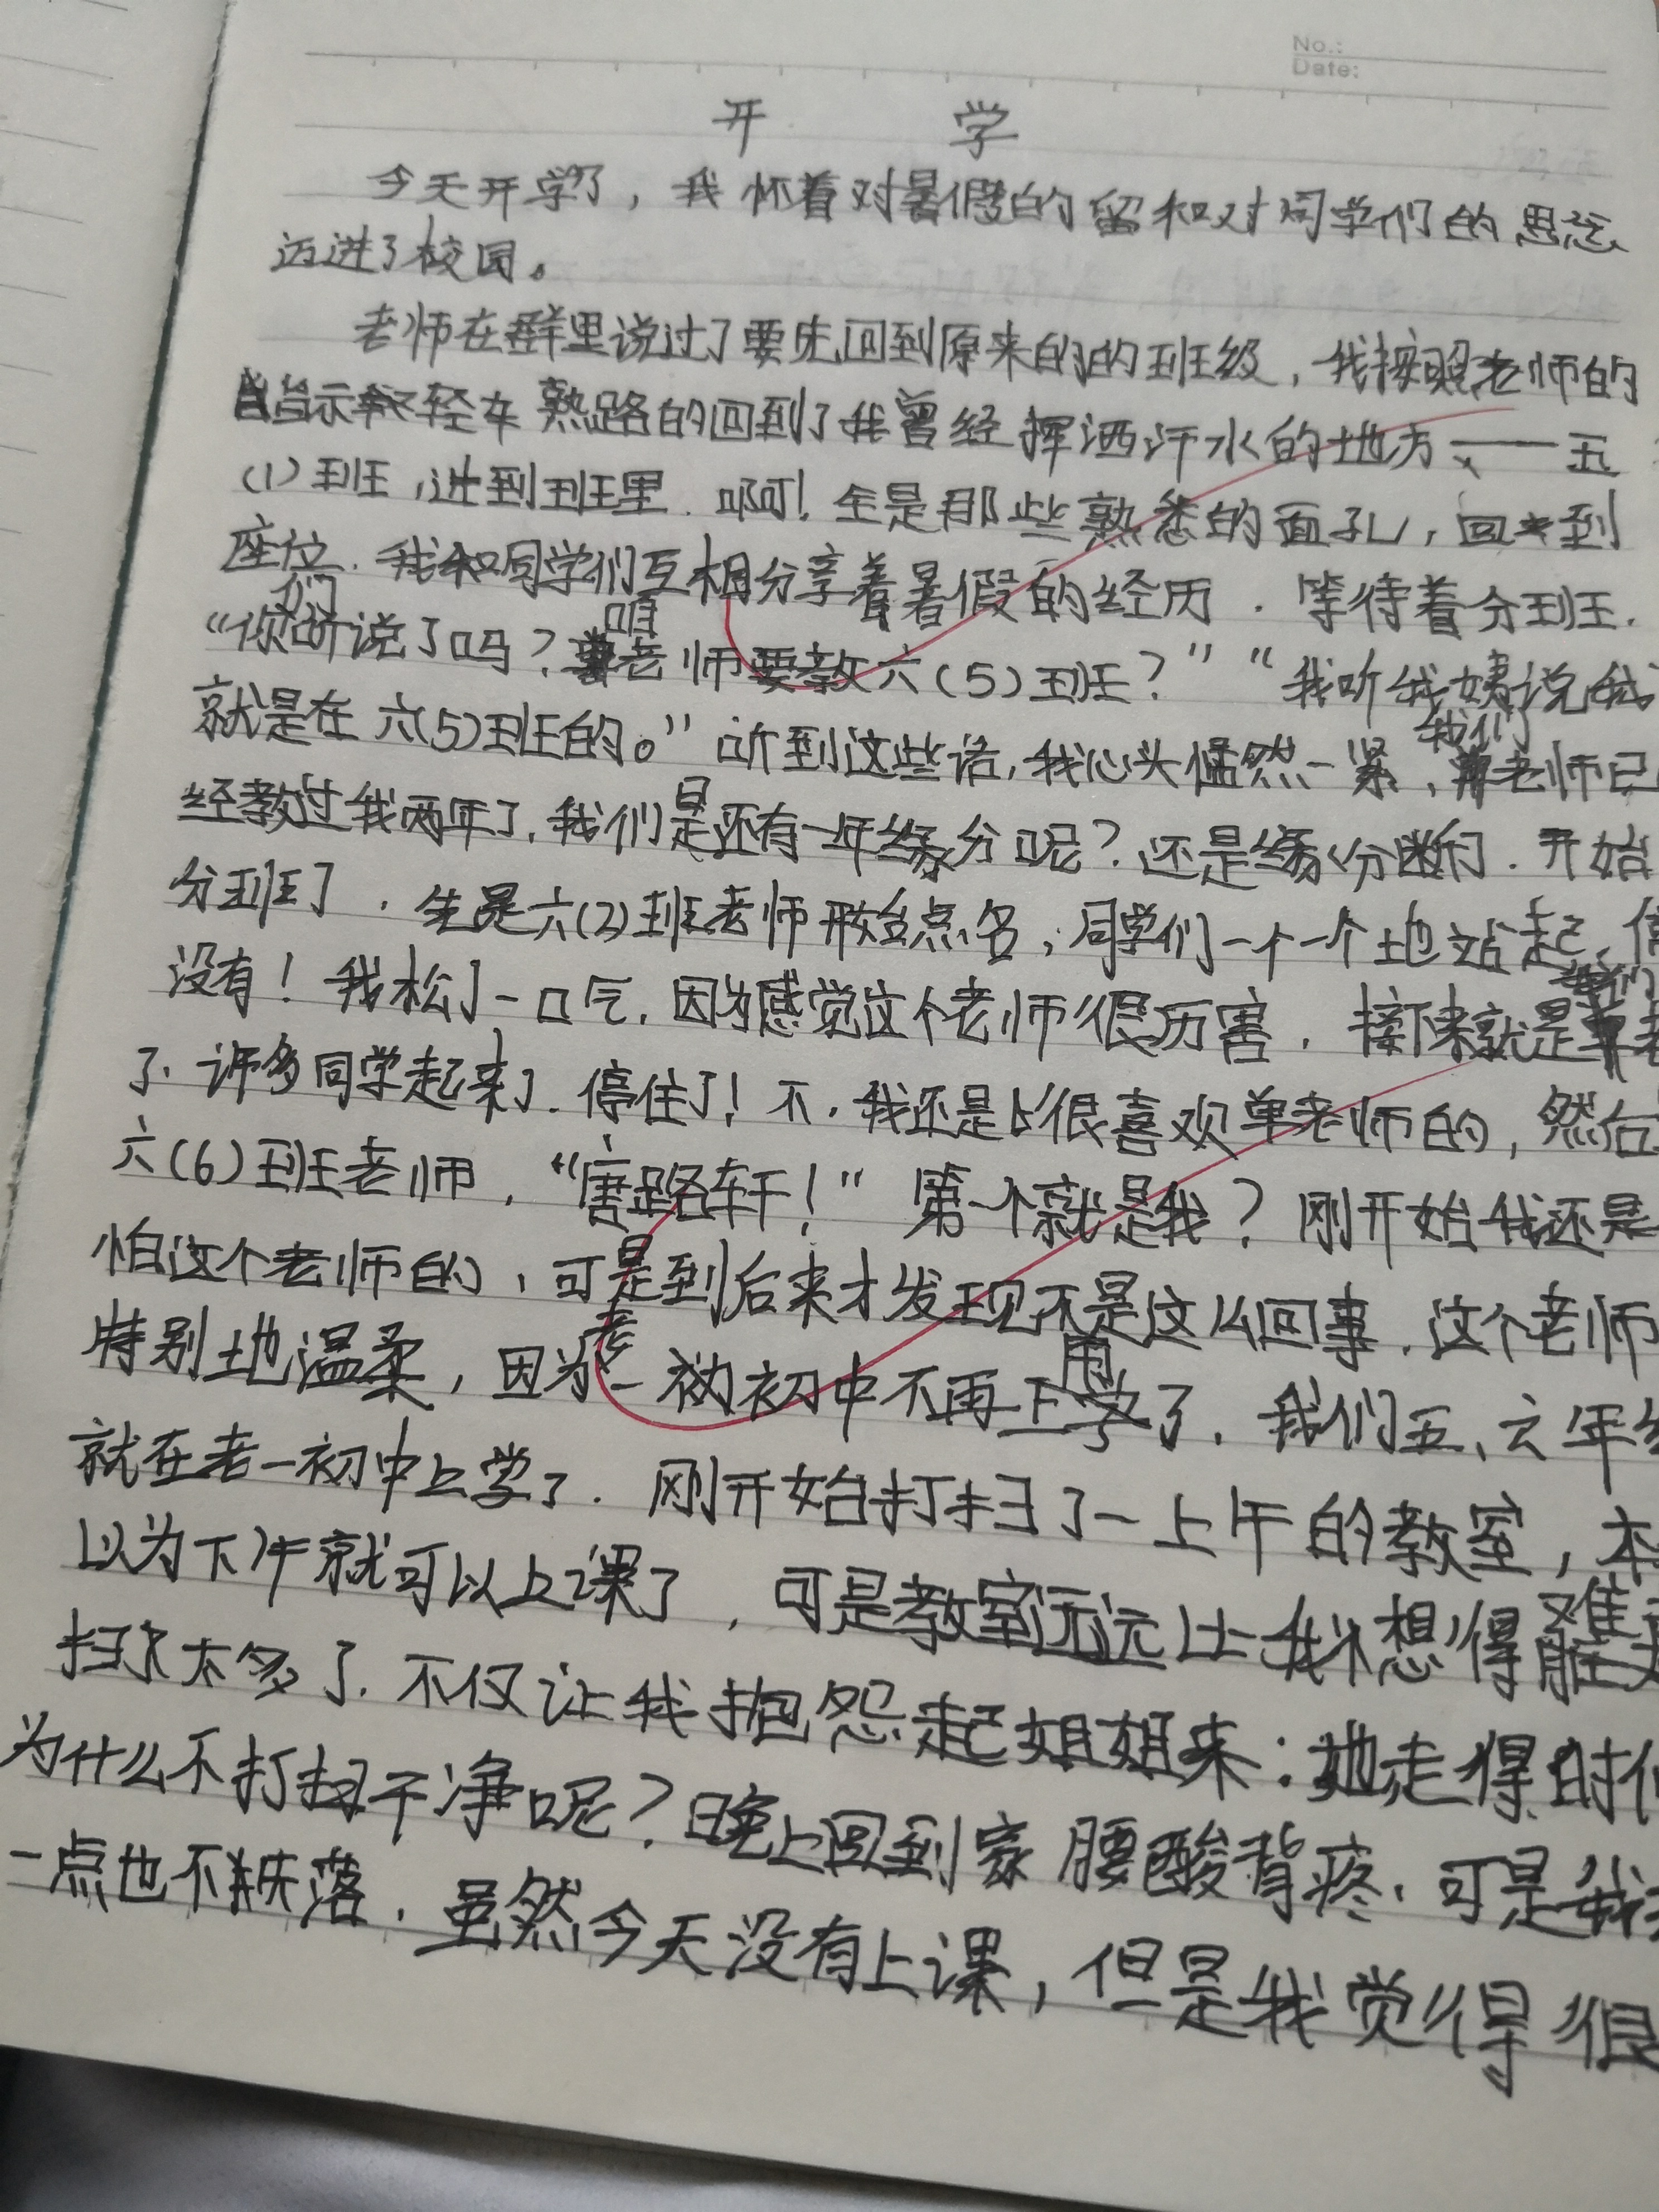 No.:
Date:
开 学
今天开学了，我怀着对暑假的留和对同学们的思念
迈进了校园。
老师在群里说过了要先回到原来的的班级，我按照老师的
指示轻车熟路的回到了我曾经挥洒汗水的地方——五
(1)班，进到班里．啊！全是那些熟悉的面孔，回到
座位．我和同学们互相分享着暑假的经历．等待着分班．
“你们听说了吗？咱老师要教六(5)班？”“我听我姨说我
就是在六(5)班的。”听到这些话，我心头猛然一紧，我们老师已
经教过我两年了．我们是还有一年缘分呢？还是缘分断了．开始
分班了．先是六(2)班老师开始点名，同学们一个一个地站起，
没有！我松了一口气．因为感觉这个老师很厉害．接下来就是
了．许多同学起来了．停住了！不，我还是很喜欢单老师的，然后
六(6)班老师，“唐路轩！”第一个就是我？刚开始我还是
怕这个老师的，可是到后来才发现不是这么回事．这个老师
特别地温柔，因为老一初中不再用了．我们五、六年级
就在老一初中上学了．刚开始打扫了一上午的教室，本
以为下午就可以上课了，可是教室远远比我想得难
扫太多了．不仅让我抱怨起姐姐来：她走得时
为什么不打扫干净呢？晚上回到家腰酸背疼．可是我
一点也不失落．虽然今天没有上课，但是我觉得很